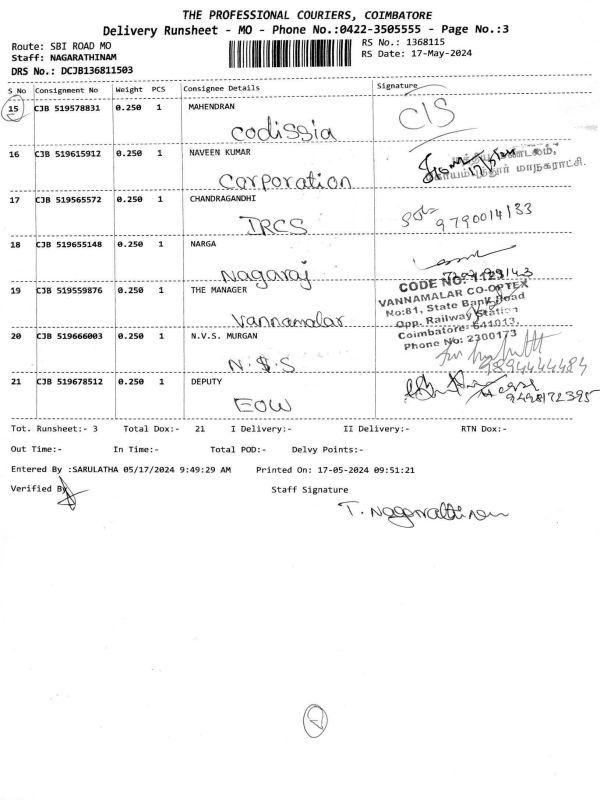 THE PROFESSIONAL COURIERS, COIMBATORE
Delivery Runsheet - MO - Phone No.:0422-3505555 - Page No.:3
Route: SBI ROAD MO
RS No.: 1368115
Staff: NAGARATHINAM
RS Date: 17-May-2024
DRS No.: DCJB136811503
S No Consignment No Weight PCS Consignee Details Signature
15 CJB 519578831 0.250 1 MAHENDRAN
Codissia C/S
16 CJB 519615912 0.250 1 NAVEEN KUMAR
Corporation மாநகராட்சி.
17 CJB 519565572 0.250 1 CHANDRAGANDHI
IRCS 9790014133
18 CJB 519655148 0.250 1 NARGA
Nagaraj
19 CJB 519559876 0.250 1 THE MANAGER
Vannamalar
CODE NO: 1129
VANNAMALAR CO-OPTEX
No:81, State Bank Road
Opp. Railway Station
Coimbatore- 641013,
Phone No: 2300173
20 CJB 519666003 0.250 1 N.V.S. MURGAN
N.S.S 9894444484
21 CJB 519678512 0.250 1 DEPUTY
EOW 9498172395
Tot. Runsheet:- 3 Total Dox:- 21 I Delivery:- II Delivery:- RTN Dox:-
Out Time:- In Time:- Total POD:- Delvy Points:-
Entered By :SARULATHA 05/17/2024 9:49:29 AM Printed On: 17-05-2024 09:51:21
Verified By Staff Signature
T. Nagarathinam